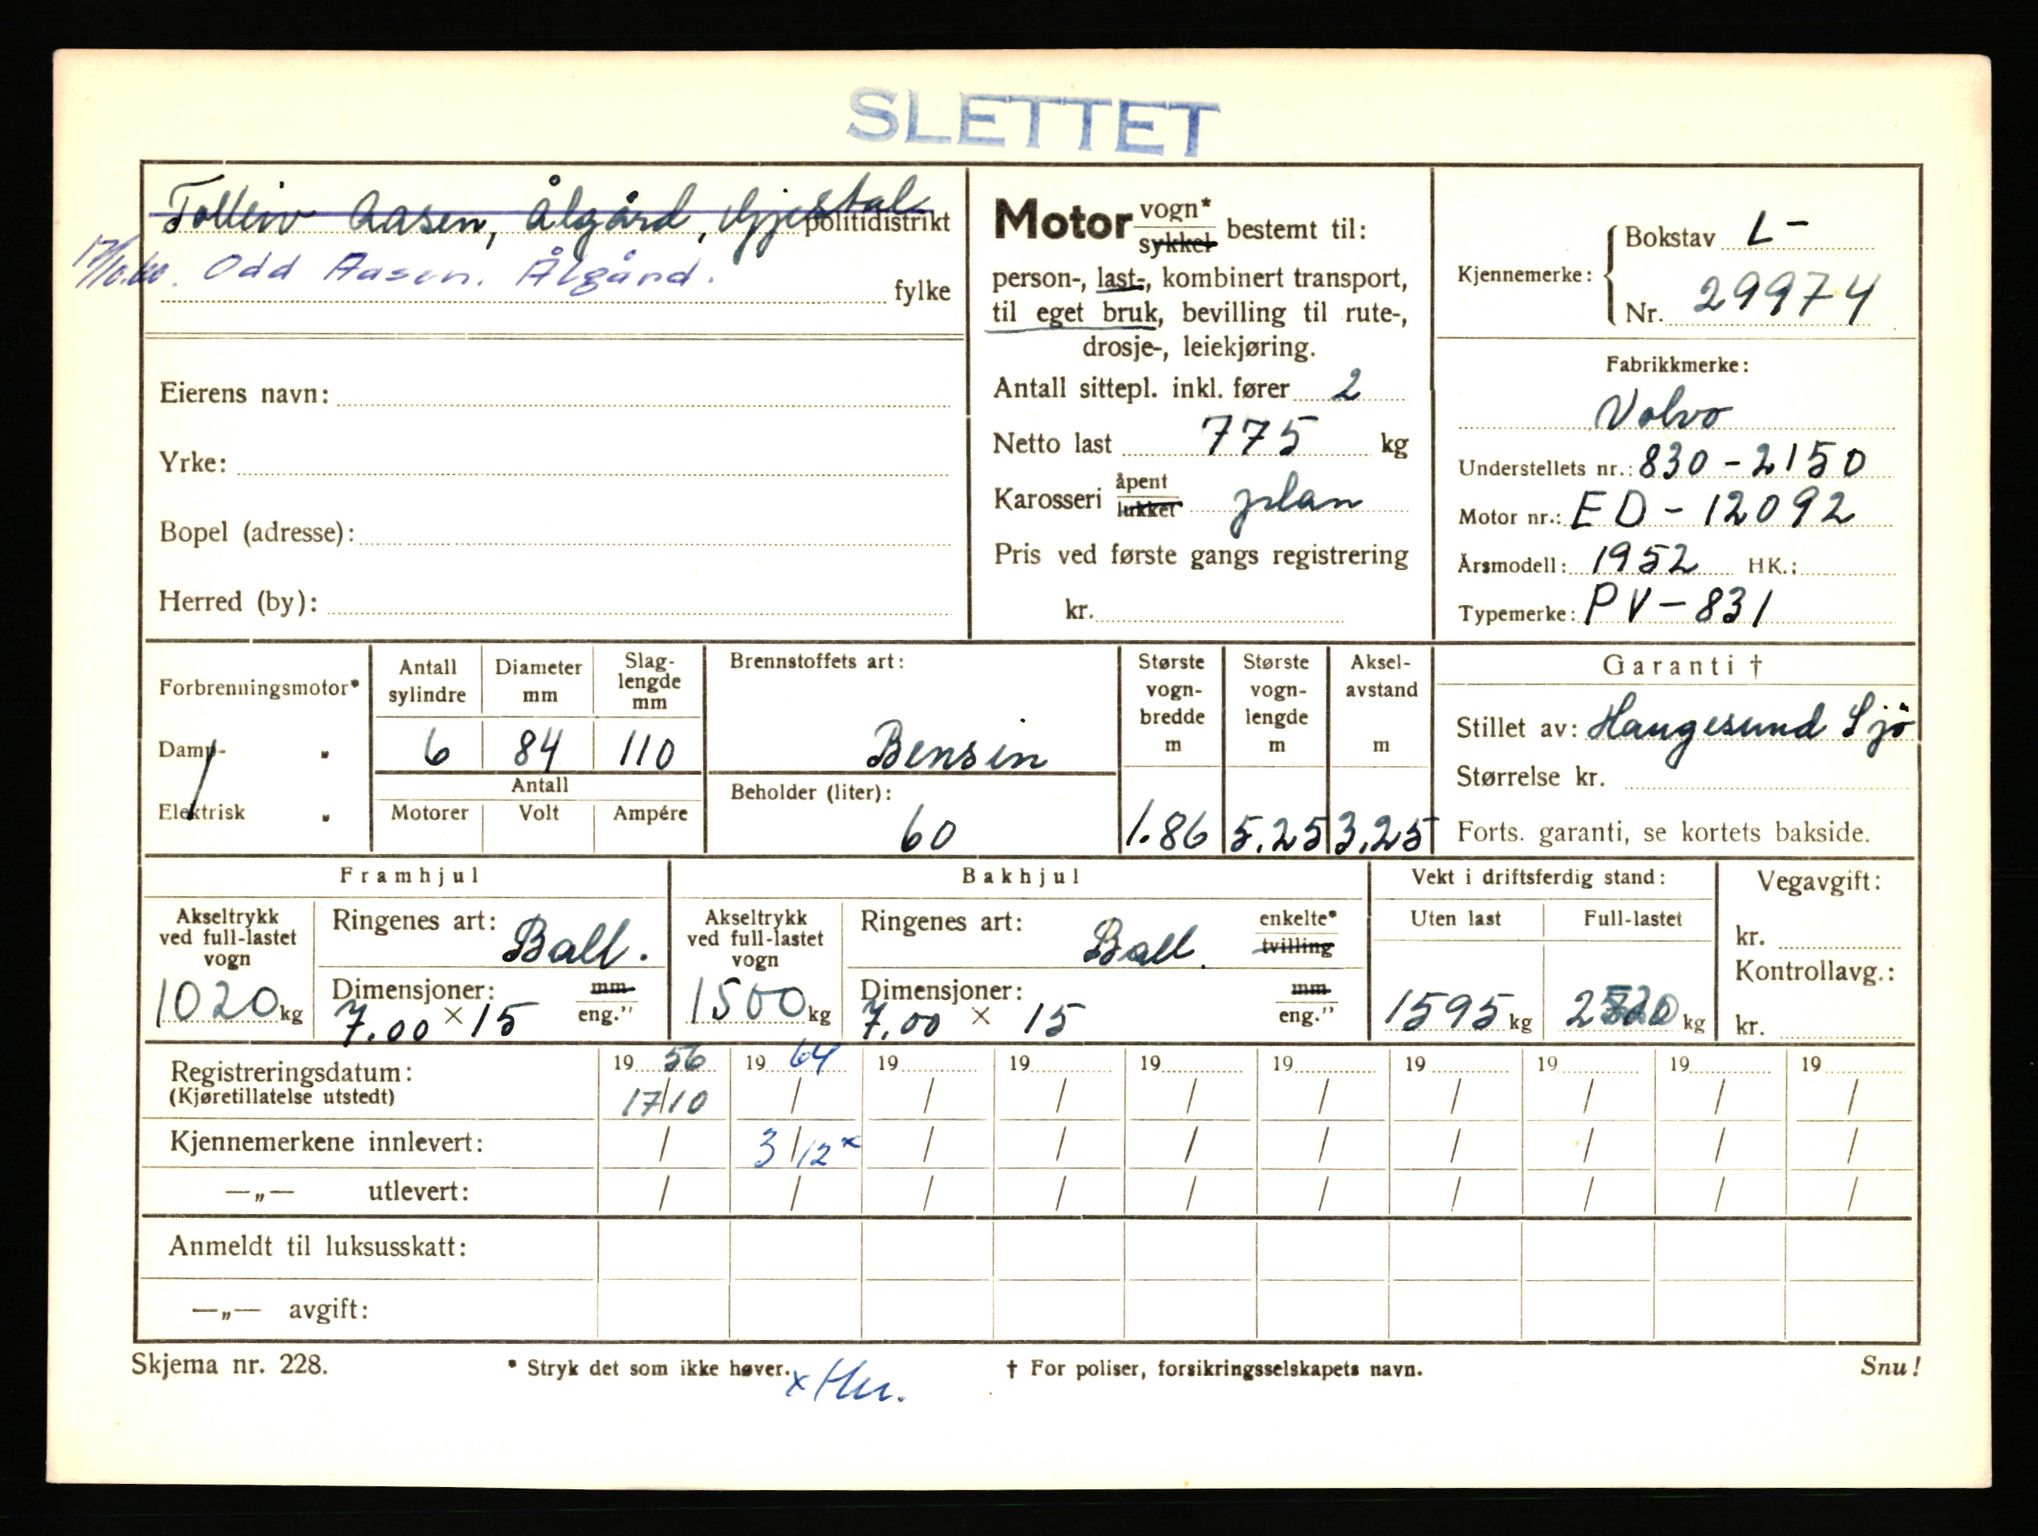 SLETTET
Tolleiv Aasen, Ålgård, Gjestal politidistrikt
17/10.60. Odd Aasen. Ålgård. fylke
Eierens navn:
Yrke:
Bopel (adresse):
Herred (by):
Motor vogn* sykkel bestemt til:
person-, last-, kombinert transport,
til eget bruk, bevilling til rute-,
drosje-, leiekjøring.
Antall sittepl. inkl. fører 2
Netto last 775 kg
Karosseri åpent lukket plan
Pris ved første gangs registrering
kr.
Kjennemerke: Bokstav L-
Nr. 29974
Fabrikkmerke:
Volvo
Understellets nr.: 830-2150
Motor nr.: ED-12092
Årsmodell: 1952 HK.:
Typemerke: PV-831
Forbrenningsmotor*
Damp- "
Elektrisk "
Antall sylindre Diameter mm Slag-lengde mm
6 84 110
Antall
Motorer Volt Ampére
Brennstoffets art:
Bensin
Beholder (liter):
60
Største vogn-bredde m Største vogn-lengde m Aksel-avstand m
1.86 5.25 3.25
Garanti †
Stillet av: Haugesund Sjø
Størrelse kr.
Forts. garanti, se kortets bakside.
Framhjul
Akseltrykk ved full-lastet vogn
1020 kg
Ringenes art: Ball.
Dimensjoner: mm eng."
7.00 × 15
Bakhjul
Akseltrykk ved full-lastet vogn
1500 kg
Ringenes art: Ball. enkelte* tvilling
Dimensjoner: mm eng."
7.00 × 15
Vekt i driftsferdig stand:
Uten last Full-lastet
1595 kg kg
Vegavgift:
kr.
Kontrollavg.:
kr.
Registreringsdatum: 19 56 19 64 19 19 19 19 19 19 19 19
(Kjøretillatelse utstedt) 17/10 / / / / / / / / /
Kjennemerkene innlevert: / 3/12 x / / / / / / / /
—„— utlevert: / / / / / / / / / /
Anmeldt til luksusskatt:
—„— avgift:
Skjema nr. 228. * Stryk det som ikke høver. † For poliser, forsikringsselskapets navn. Snu!